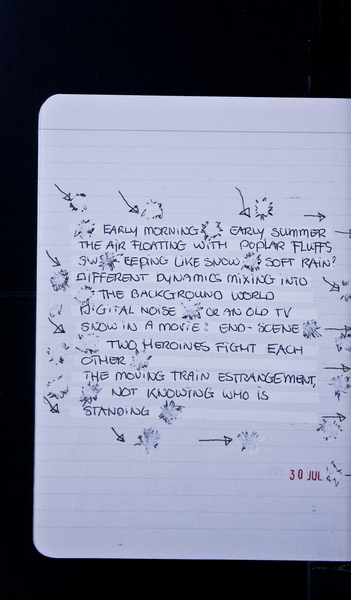 EARLY MORNING EARLY SUMMER
THE AIR FLOATING WITH POPLAR FLUFFS
SW EEPING LIKE SNOW SOFT RAIN?
DIFFERENT DYNAMICS MIXING INTO
THE BACKGROUND WORLD
DIGITAL NOISE OR AN OLD TV
SNOW IN A MOVIE: END-SCENE
TWO HEROINES FIGHT EACH
OTHER
THE MOVING TRAIN ESTRANGEMENT,
NOT KNOWING WHO IS
STANDING
30 JUL